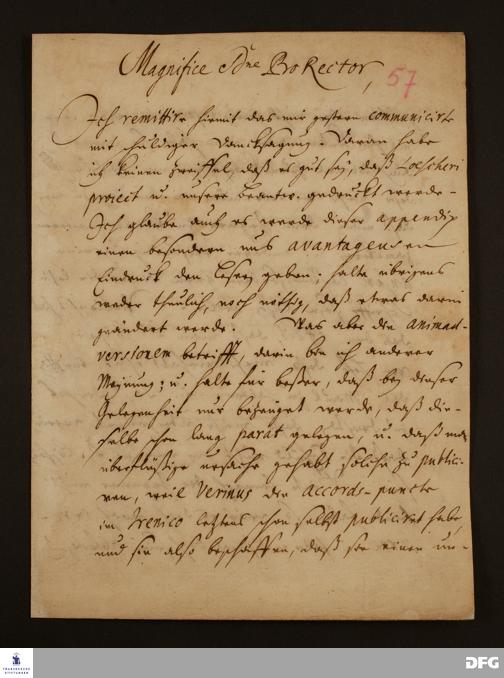 Magnifice Dne ProRector,
57
Ich remittire hiermit das mir gestern communicirte
mit schuldiger Dancksagung. Daran habe
ich keinen zweiffel, daß es gut sey, daß Loescheri
project u. unsere Beantw. gedruckt werde.
Ich glaube auch es werde dieser appendix
einen besondern uns avantageusen
Eindruck den Lesern geben; halte übrigens
weder thunlich, noch nöthig, daß etwas darin
geändert werde. Was aber die animad-
versionem betrifft, darin bin ich anderer
Meynung; u. halte für beßer, daß bey dieser
Gelegenheit nur bezeuget werde, daß die-
selbe schon lang parat gelegen, u. daß man
überflüßige ursache gehabt solche zu publici-
ren, weil Verinus die accords-puncte
im Irenico letztens schon selbst publiciret habe,
und sie also beschaffen, daß sie einen un-
FRANCKESCHE
STIFTUNGEN
DFG